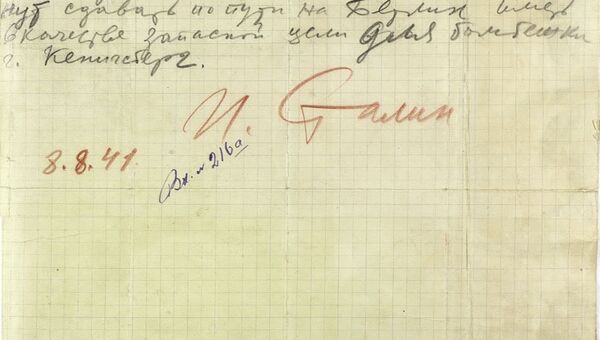 нут сдавать по пути на Берлин иметь
в качестве запасной цели для бомбежки
г. Кенигсберг.
И. Сталин
8.8.41
Вх. № 216а